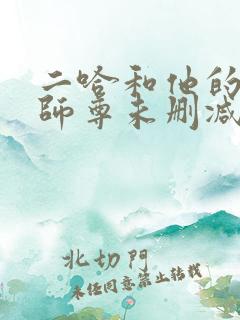 二哈和他的
師尊未刪减
北切門
未经同意禁止转载